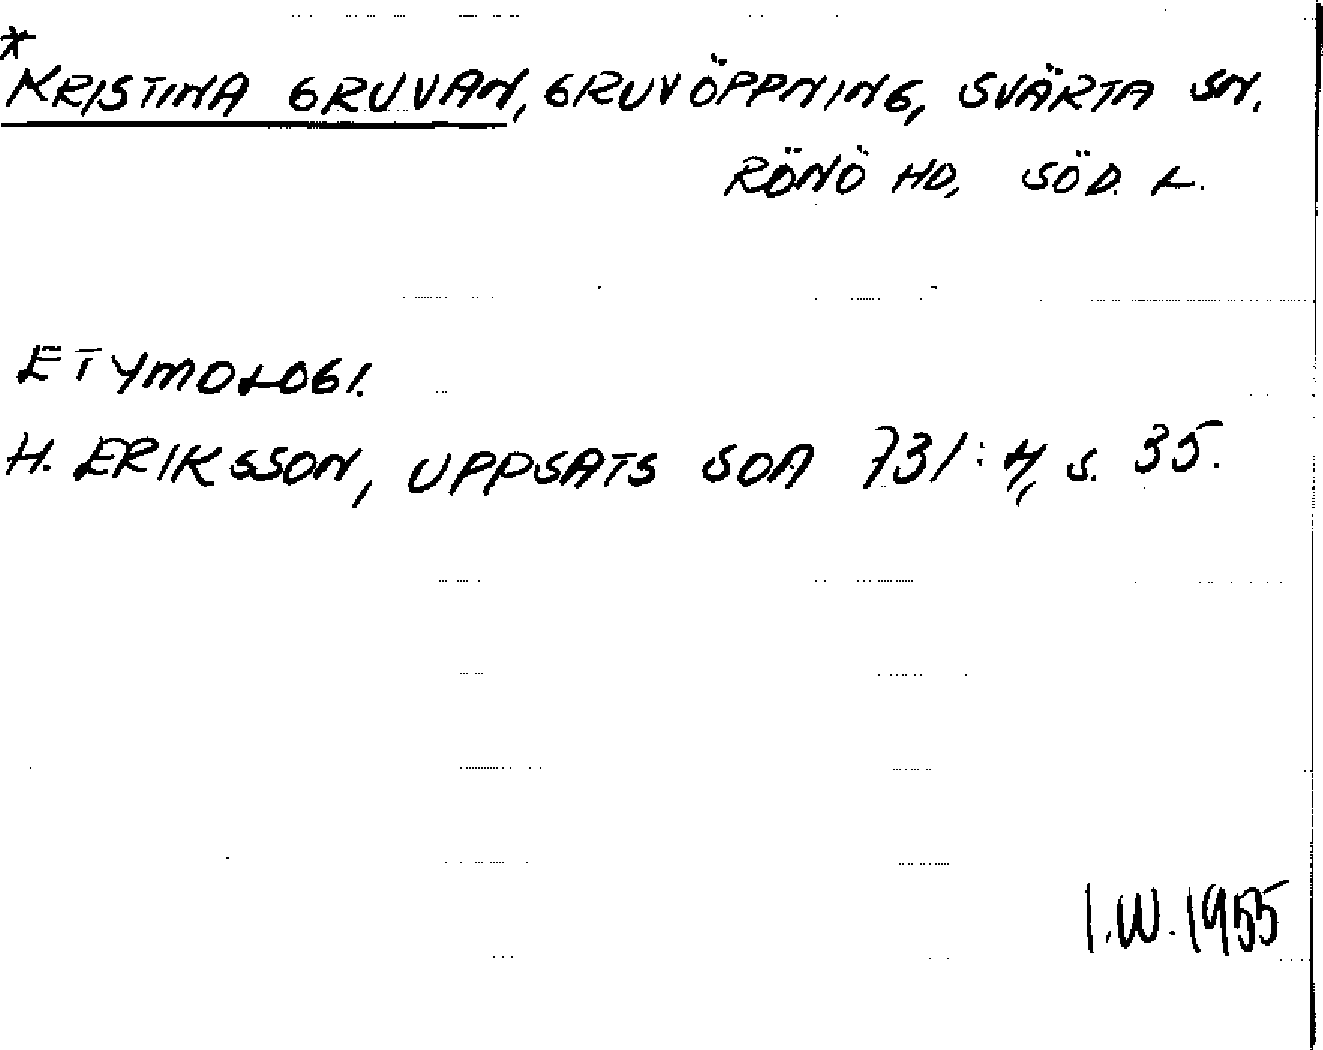 *KRISTINA GRUVAN, GRUVÖPPNING, SVÄRTA SN.
RÖNÖ HD, SÖD. L.
ETYMOLOGI.
H. ERIKSSON, UPPSATS SOA 731:4, S. 35.
I.W. 1955